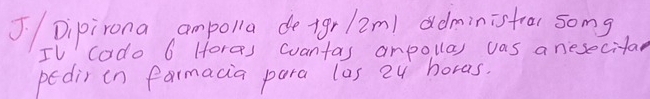 J./ Dipirona ampolla de 1gr/2ml administrar 50mg
IV cada 6 Horas cuantas ampollas vas a nesecitar
pedir en farmacia para las 24 horas.